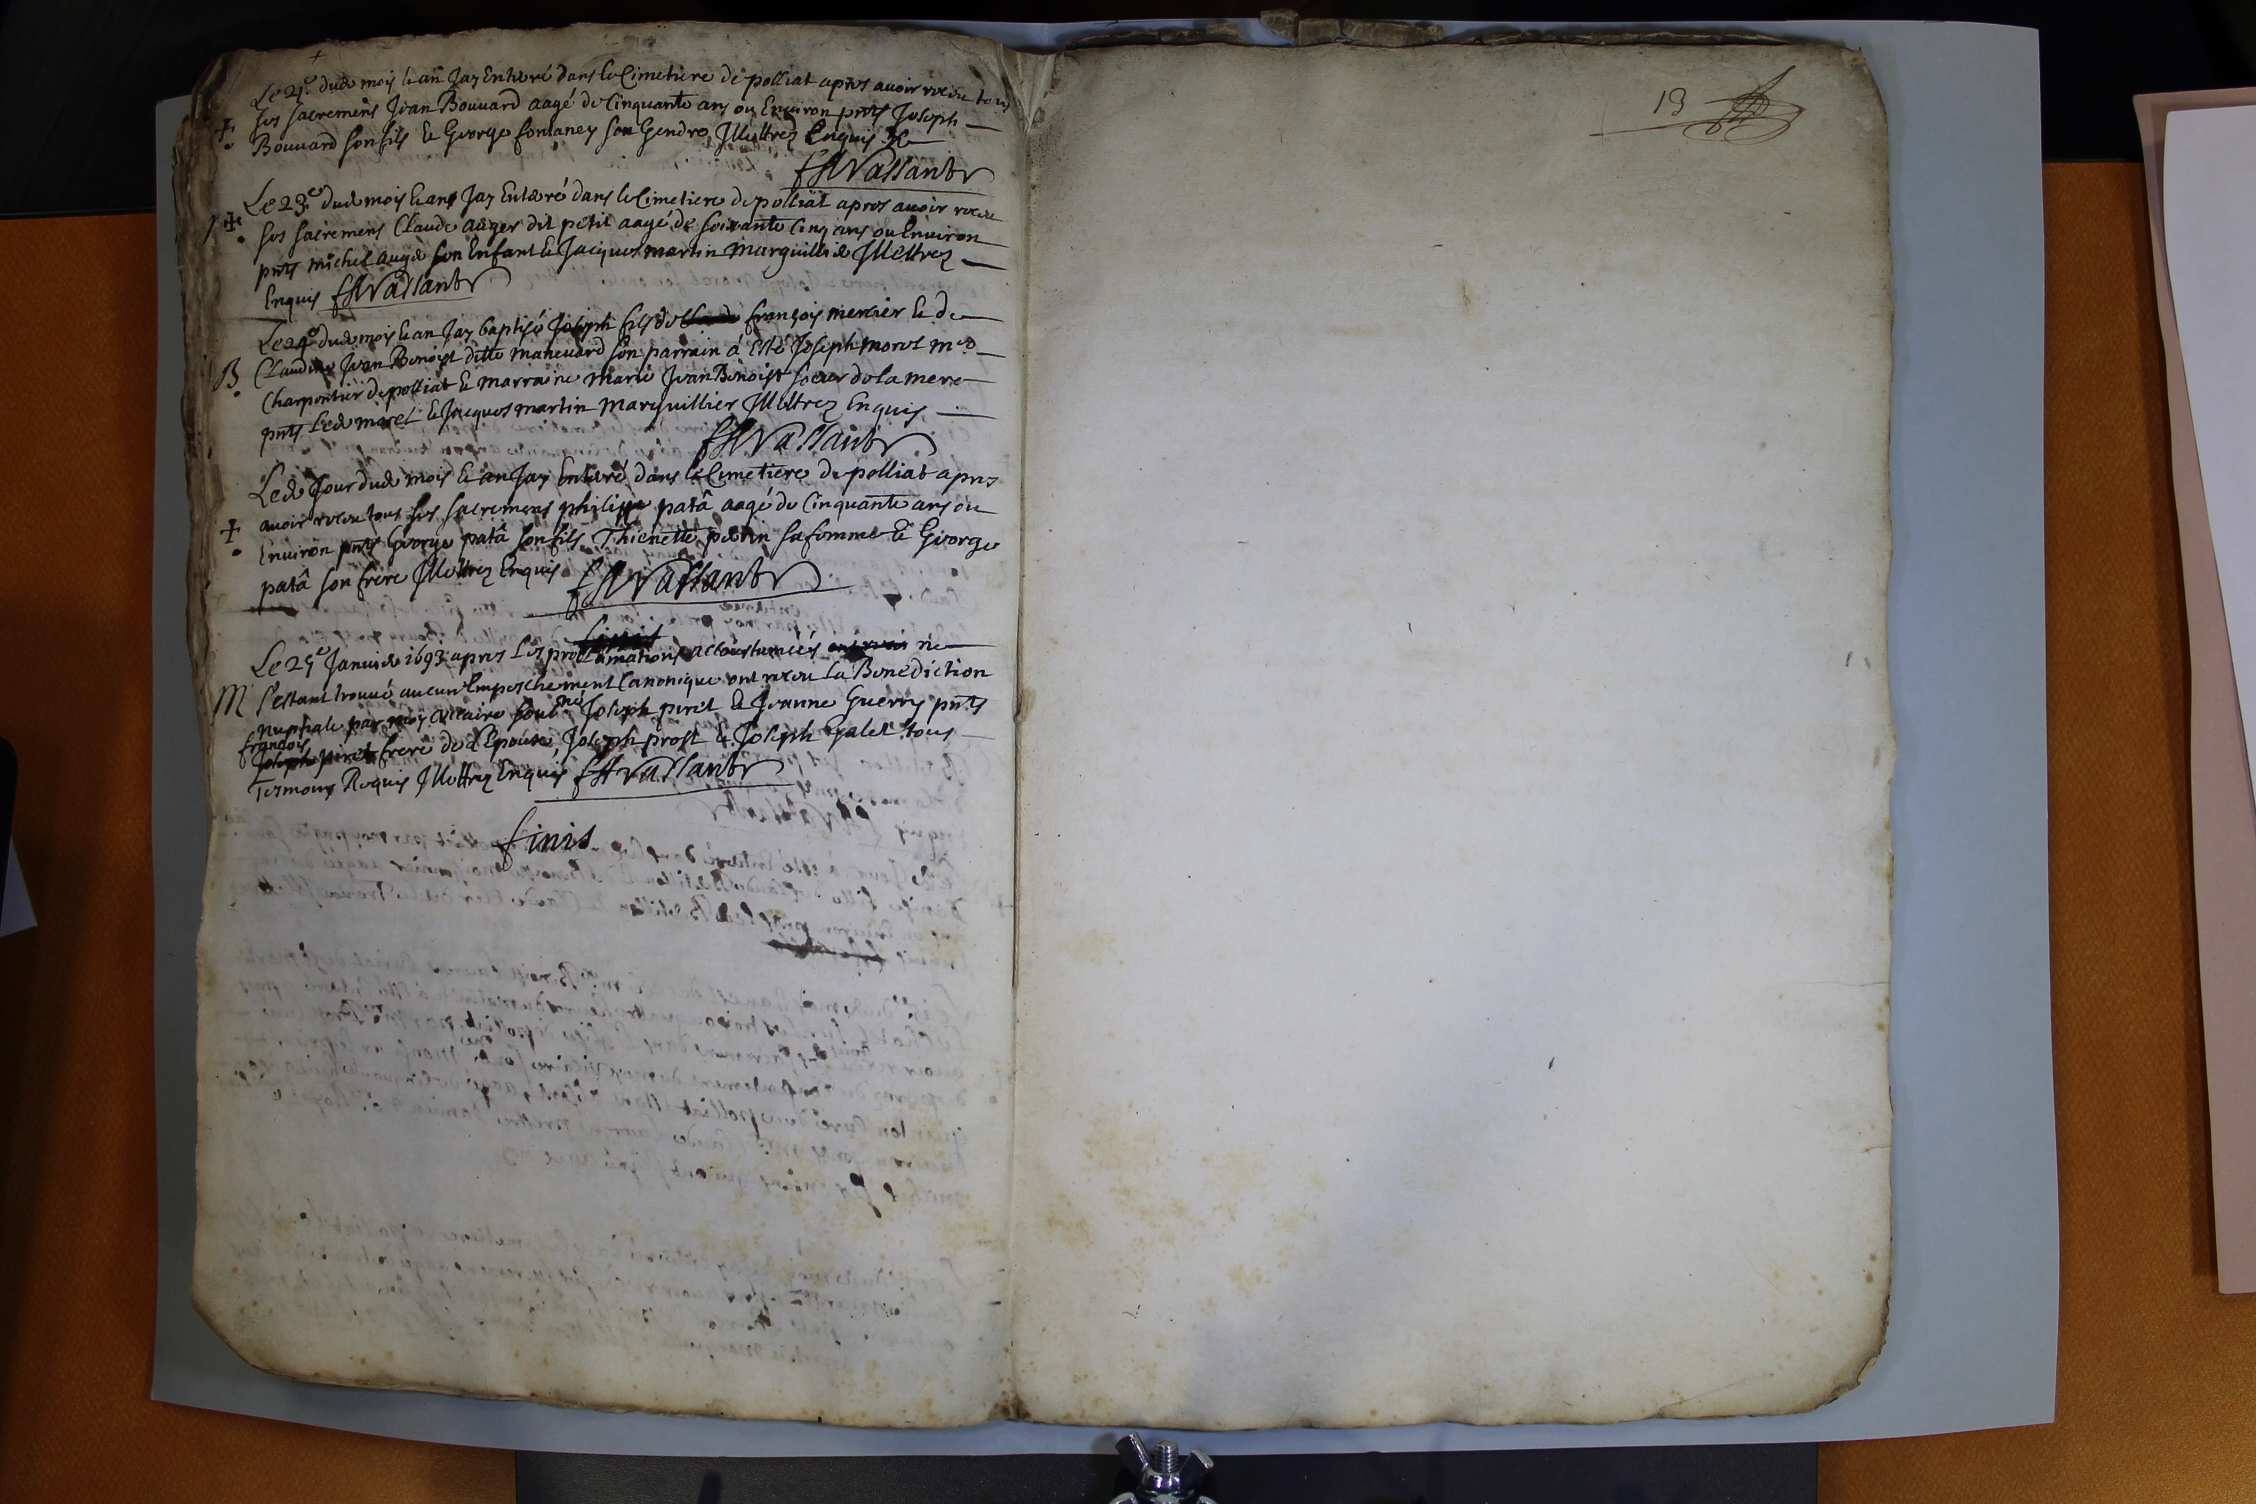 +
Le 21e dud mois & an Jay Enterré dans le Cimetiere de polliat apres avoir receu tous
+ ses sacremens Jean Bouvard aagé de Cinquante ans ou Environ pnts Joseph
Bouvard son fils & George fontaney son Gendre Illettrez Enquis &c
Vassant
Le 23e dud mois & an Jay Enterré dans le Cimetiere de polliat apres avoir receu
+ ses sacremens Claude auger dit petit aagé de soixante Cinq ans ou Environ
pnts michel auger son Enfant & Jacques martin marguillier Illettrez
Enquis Vassant
Le 24e dud mois & an Jay baptisé Joseph fils de françois mercier & de
B Claudine Jean Benoist ditte manevard son parrain à Esté Joseph morel me
Charpentier de polliat & marraine marie Jean Benoist soeur de la mere
pnts Led morel & Jacques martin Marguillier Illettrez Enquis
Vassant
Led Jour dud mois & an Jay Enterré dans le Cimetiere de polliat apres
+ avoir receu tous ses sacremens philippe patâ aagé de Cinquante ans ou
Environ pnts George patâ son fils Thienette perrin sa femme & George
patâ son frere Illettrez Enquis Vassant
finis
Le 25e Janvier 1693 apres Les proclamations accoustumées ne
M s'estant trouvé aucun Empeschement Canonique ont receu La Benediction
nuptiale par moy vicaire soubné Joseph piret & Jeanne Guerry pnts
françois
Joseph piret frere de l'Epoux, Joseph prost & Joseph Galet tous
Tesmoins Requis Illettrez Enquis Vassant
finis
13